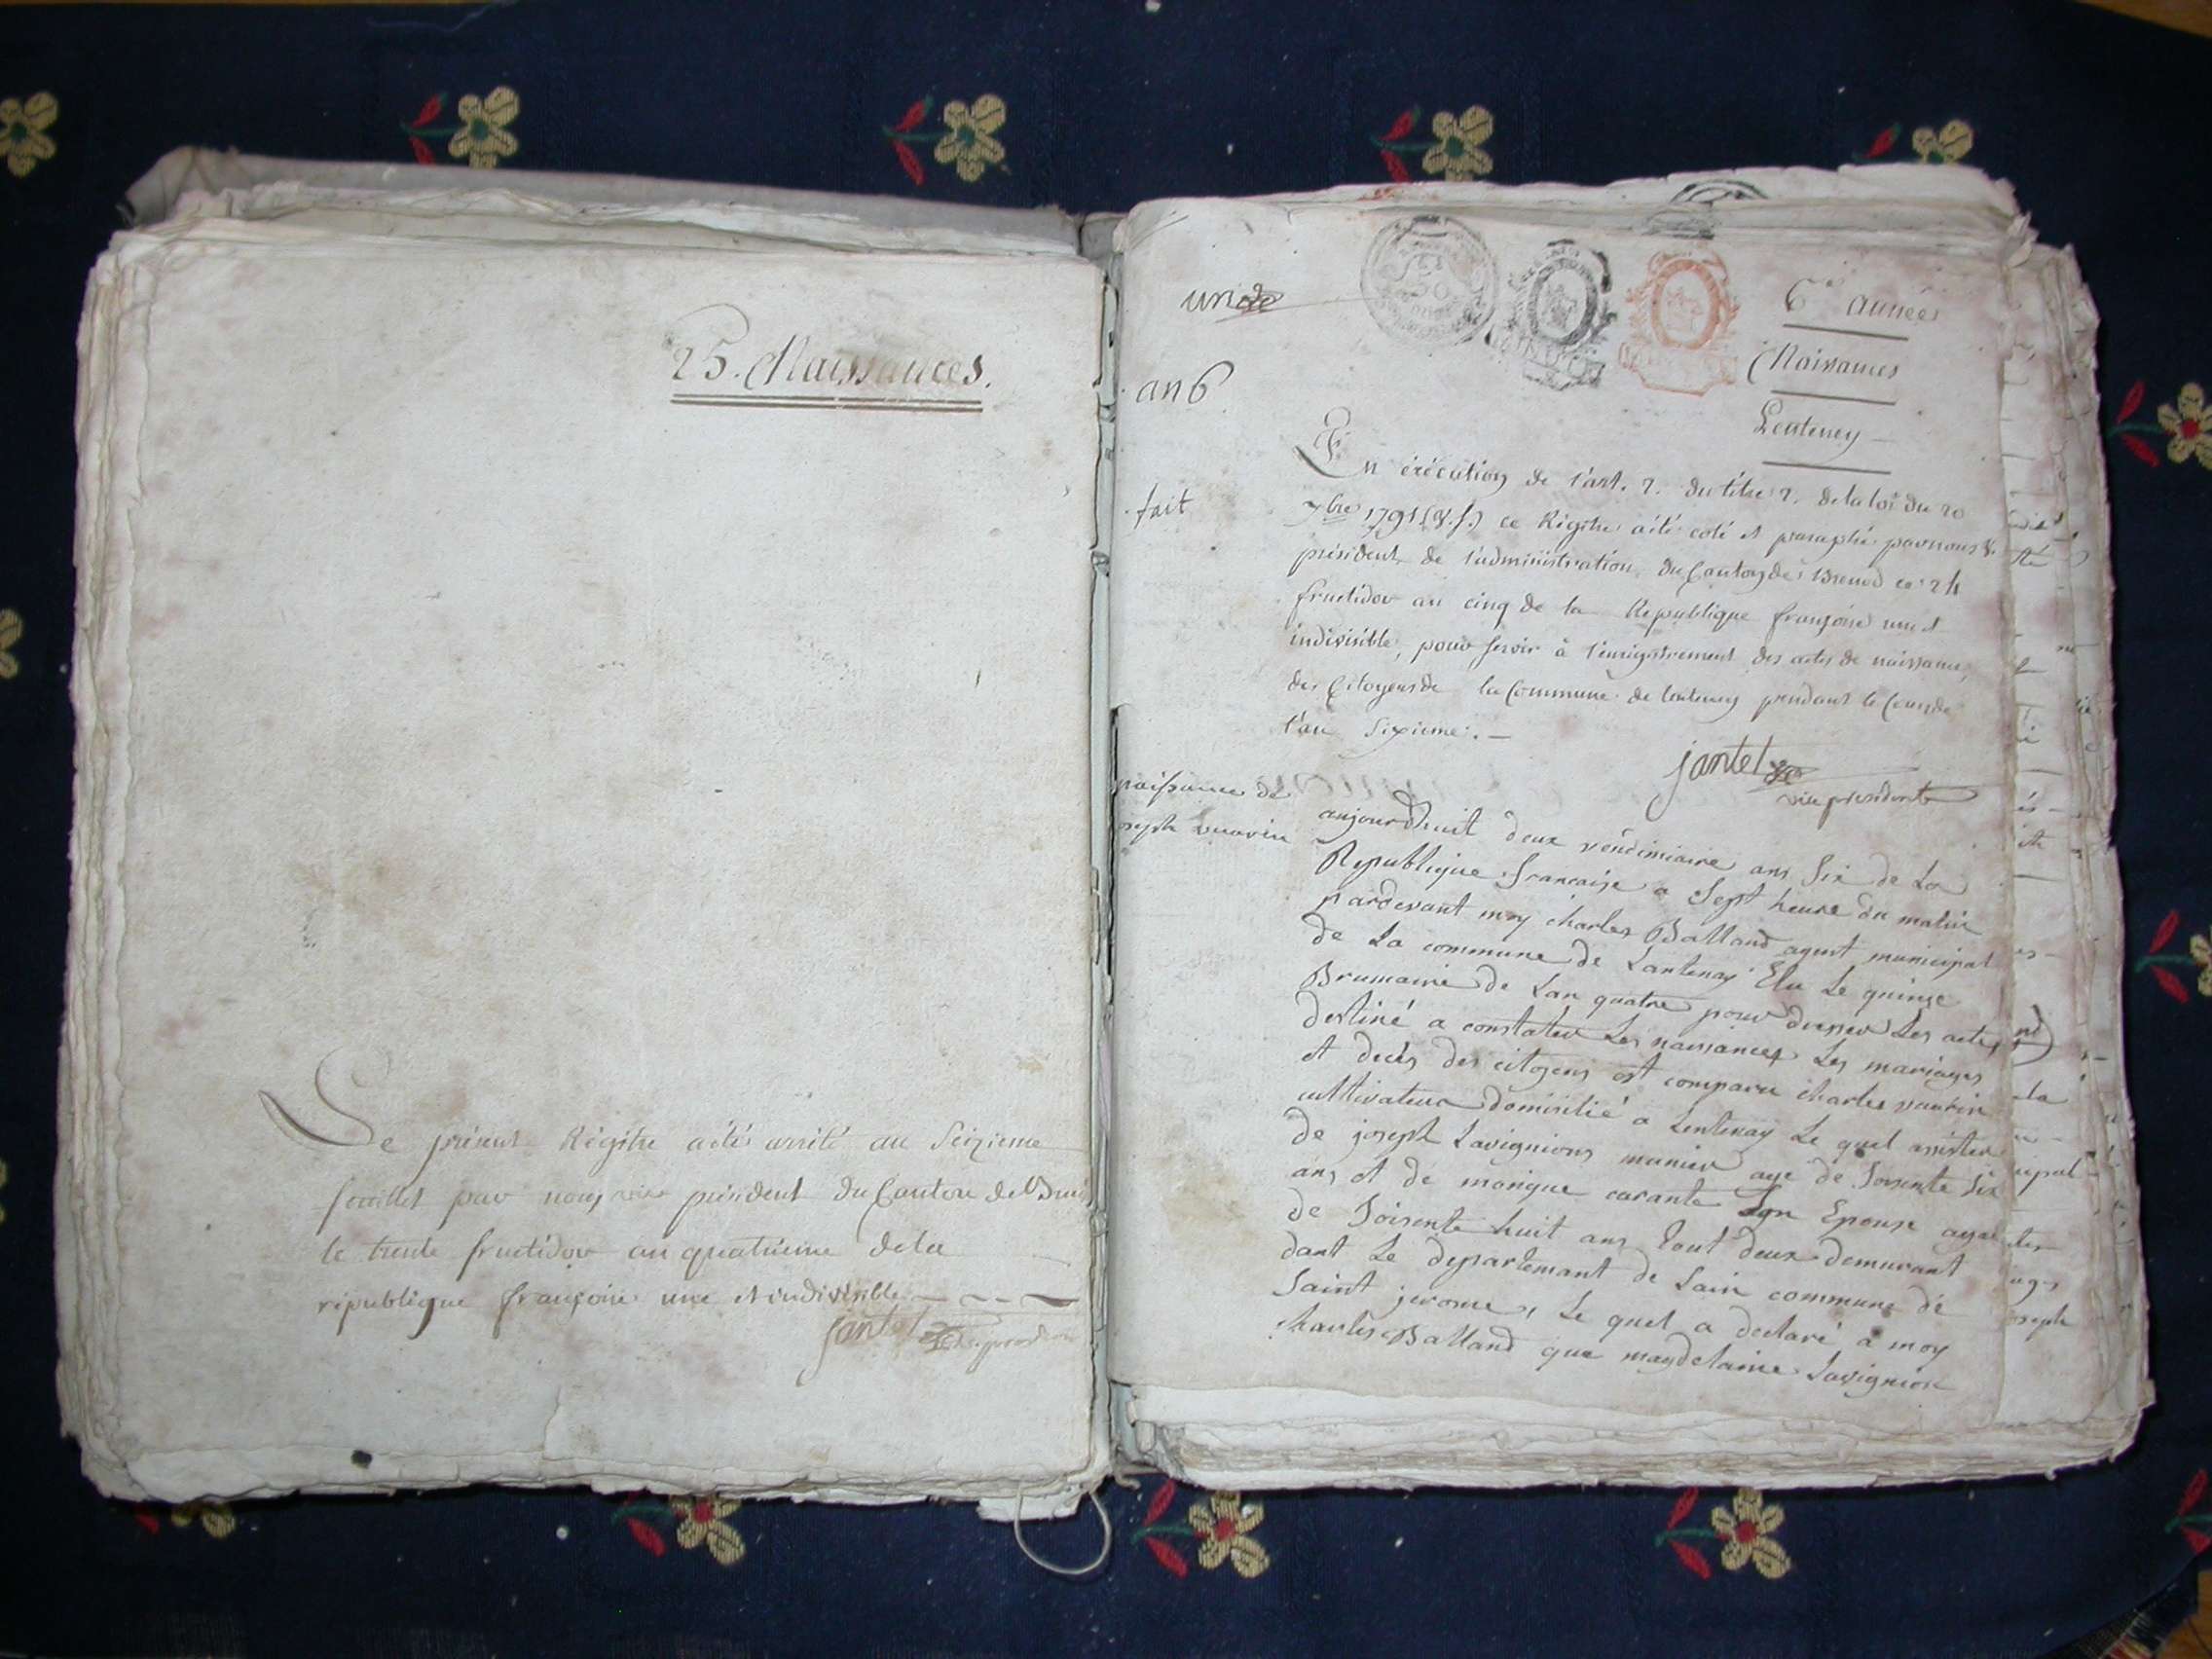 25. Naissances.
Le présent Régitre a été arrêté au Seizieme
feuillet par nous vice président du Canton de
le trente fructidor an quatrieme de la
république françoise une et indivisible
Jantet
un
6e année
Naissances
Lenteney
an 6
fait
En éxécution de l'art. 2. du titre 2. de la loi du 20
7bre 1791 (v.s.) ce Régitre a été coté et paraphé par nous v.
président de l'administration du Canton de Brenod ce 24
fructidor an cinq de la Republique françoise une et
indivisible, pour servir à l'enrigistrement des actes de naissance,
des Citoyens de la Commune de lentenay pendant le Cours de
l'an Sixieme. —
jantet
vice president
naissance de
joseph vuarin
aujourdhuit deux vendimiaire ans Six de La
Republique francaise a Sept heure du matin
pardevant moy charles Balland agent municipal
de La commune de Lantenay Elu Le quinze
Brumaire de Lan quatre pour dresser Les actes
destiné a constater Les naissances Les mariages
et decès des citoyens est comparu charles vuarin
cultivateur domicilié a Lentenay Le quel assister
de joseph Lavignions munier age de Soisente Six
ans et de monique carante Son Epouse agee
de Soisente huit ans tout deux demurant
dant Le departemant de Lain commune de
Saint jerome, Le quel a declaré a moy
charles Balland que magdelaine Lavignion